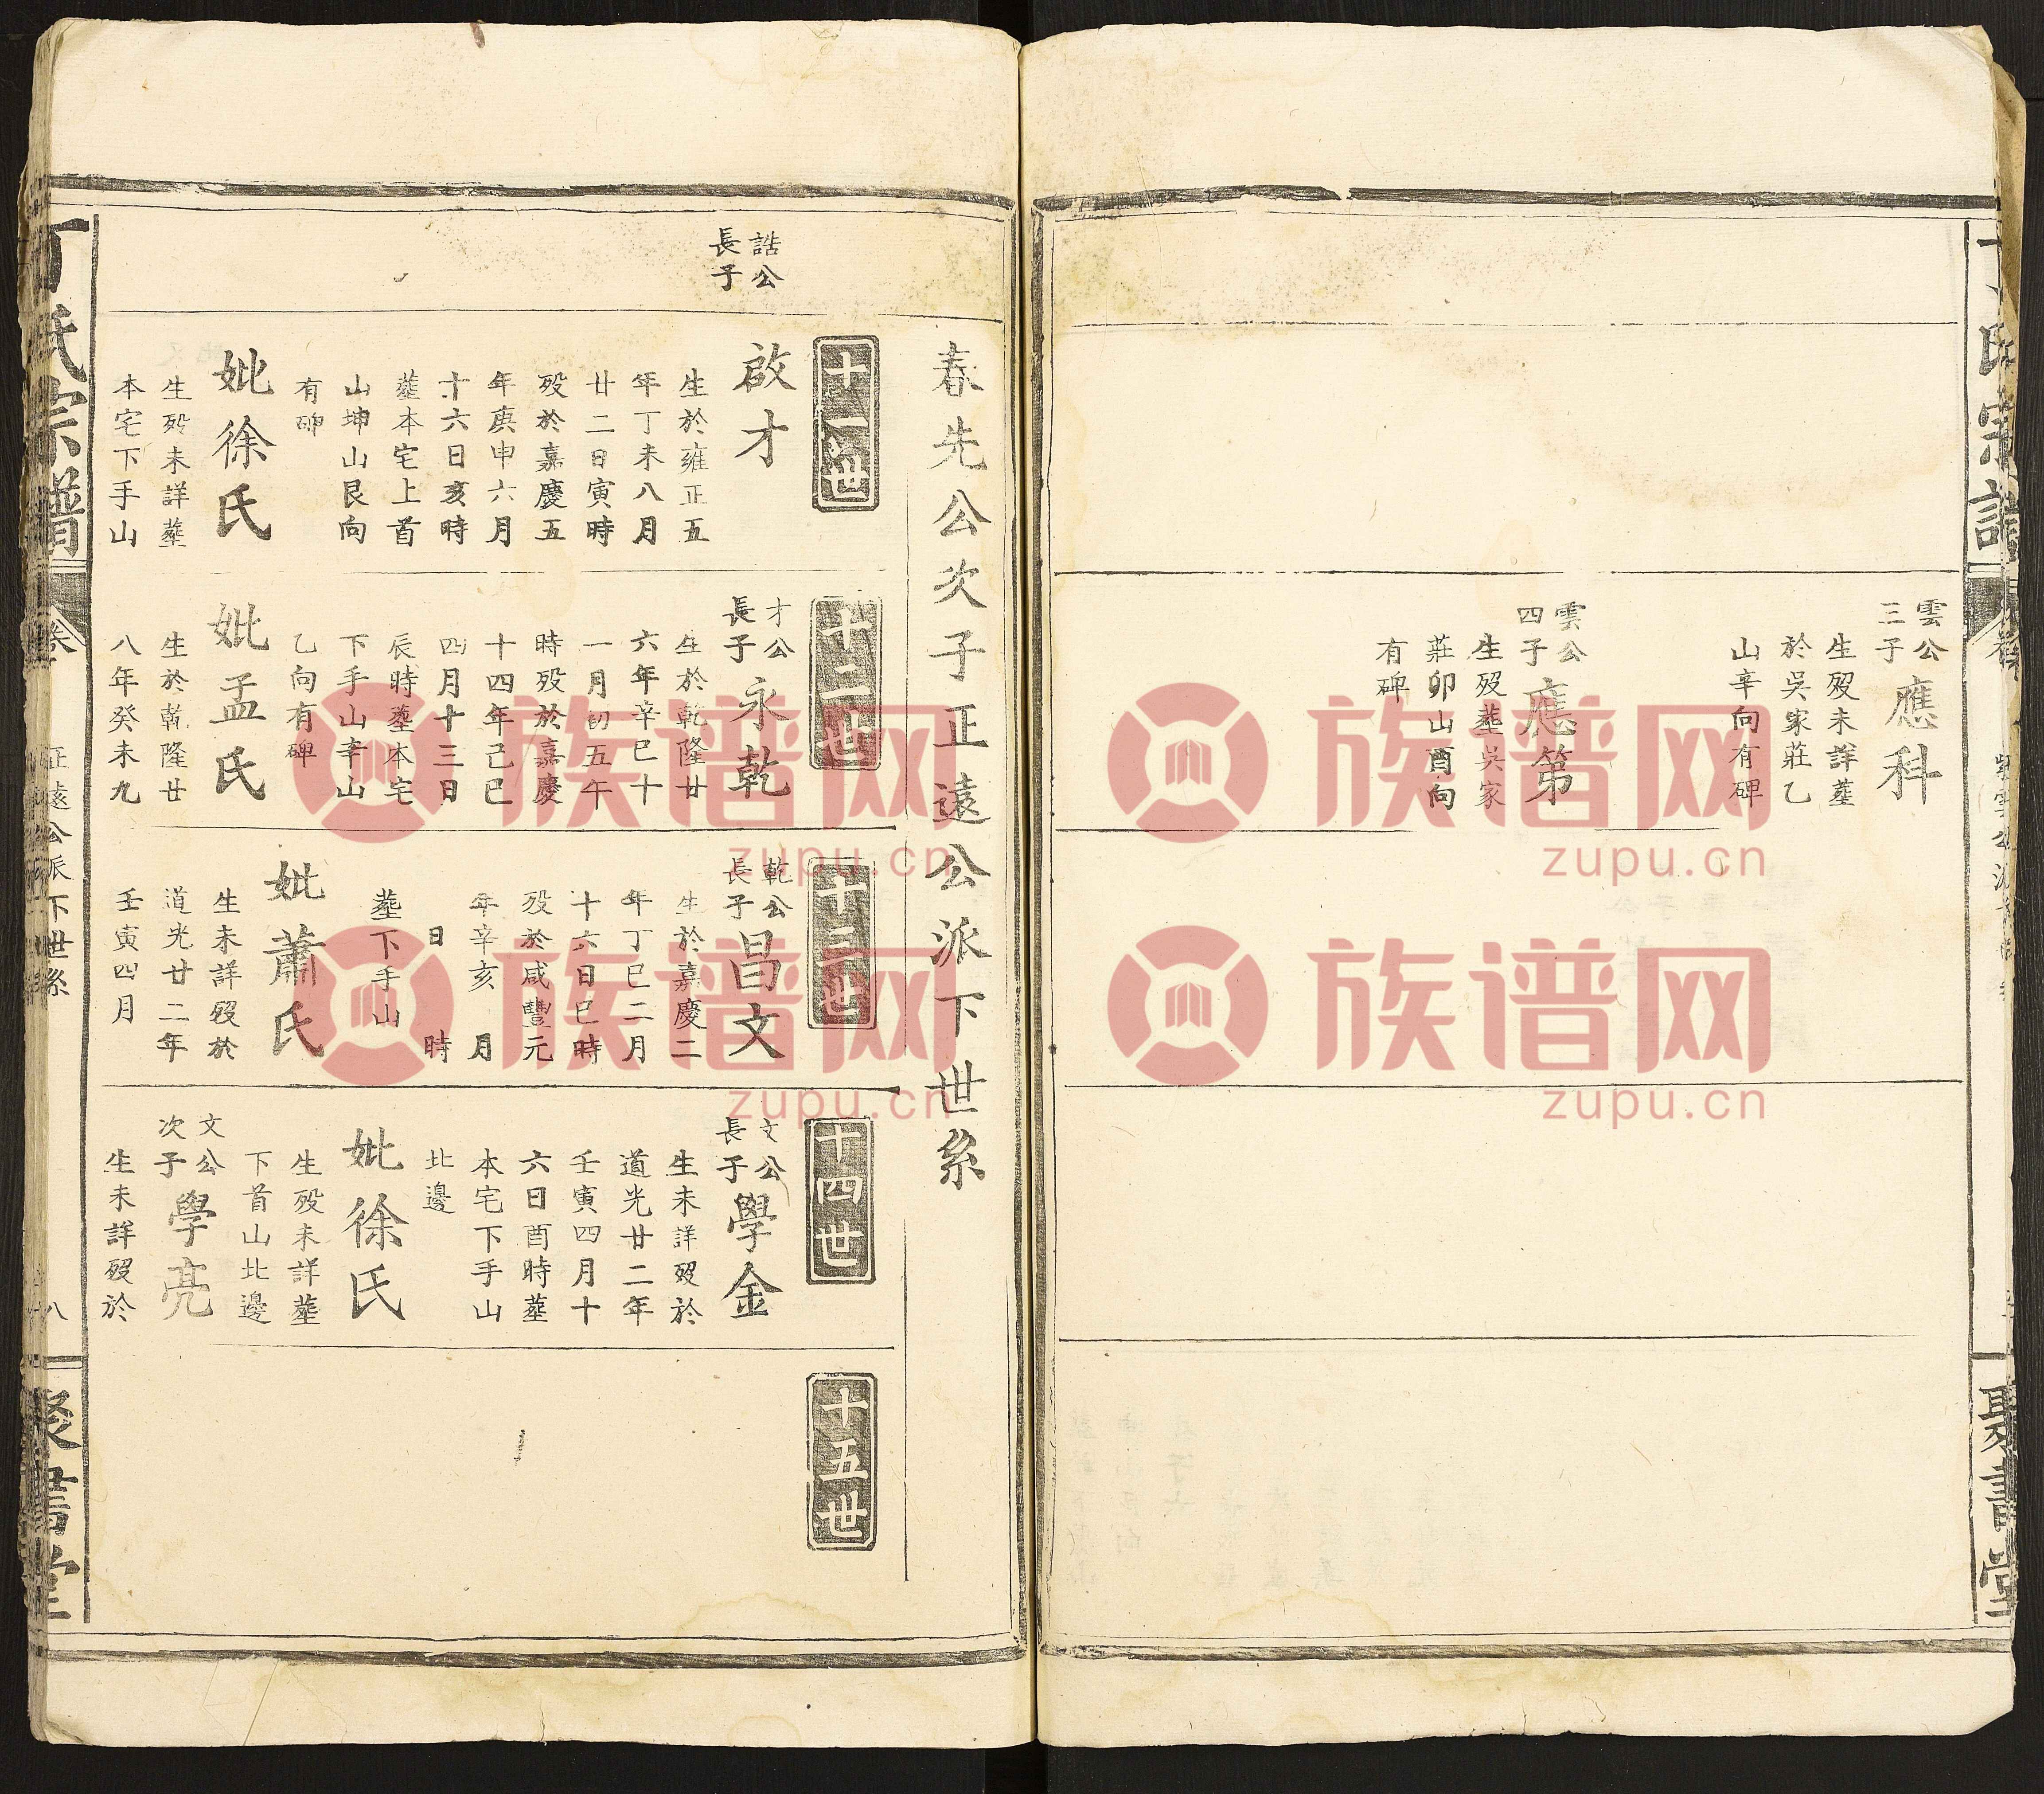 雲公
三子
應科
生歿未詳塟
於吳家莊乙
山辛向有碑
雲公
四子
應第
生歿塟吳家
莊卯山酉向
有碑
聚書堂
春先公次子正遠公派下世系
十一世
誥公
長子
啟才
生於雍正五
年丁未八月
廿二日寅時
歿於嘉慶五
年庚申六月
十六日亥時
塟本宅上首
山坤山艮向
有碑
妣徐氏
生歿未詳塟
本宅下手山
十二世
才公
長子
永乾
生於乾隆廿
六年辛巳十
一月初五午
時歿於嘉慶
十四年己巳
四月十三日
辰時塟本宅
下手山辛山
乙向有碑
妣孟氏
生於乾隆廿
八年癸未九
十三世
乾公
長子
昌文
生於嘉慶二
年丁巳二月
十六日巳時
歿於咸豐元
年辛亥 月
日 時
塟下手山
妣蕭氏
生未詳歿於
道光廿二年
壬寅四月
十四世
文公
長子
學金
生未詳歿於
道光廿二年
壬寅四月十
六日酉時塟
本宅下手山
北邊
妣徐氏
生歿未詳塟
下首山北邊
文公
次子
學亮
生未詳歿於
十五世
丁氏宗譜
正遠公派下世系
八
聚書堂
族谱网
zupu.cn
族谱网
zupu.cn
族谱网
zupu.cn
族谱网
zupu.cn